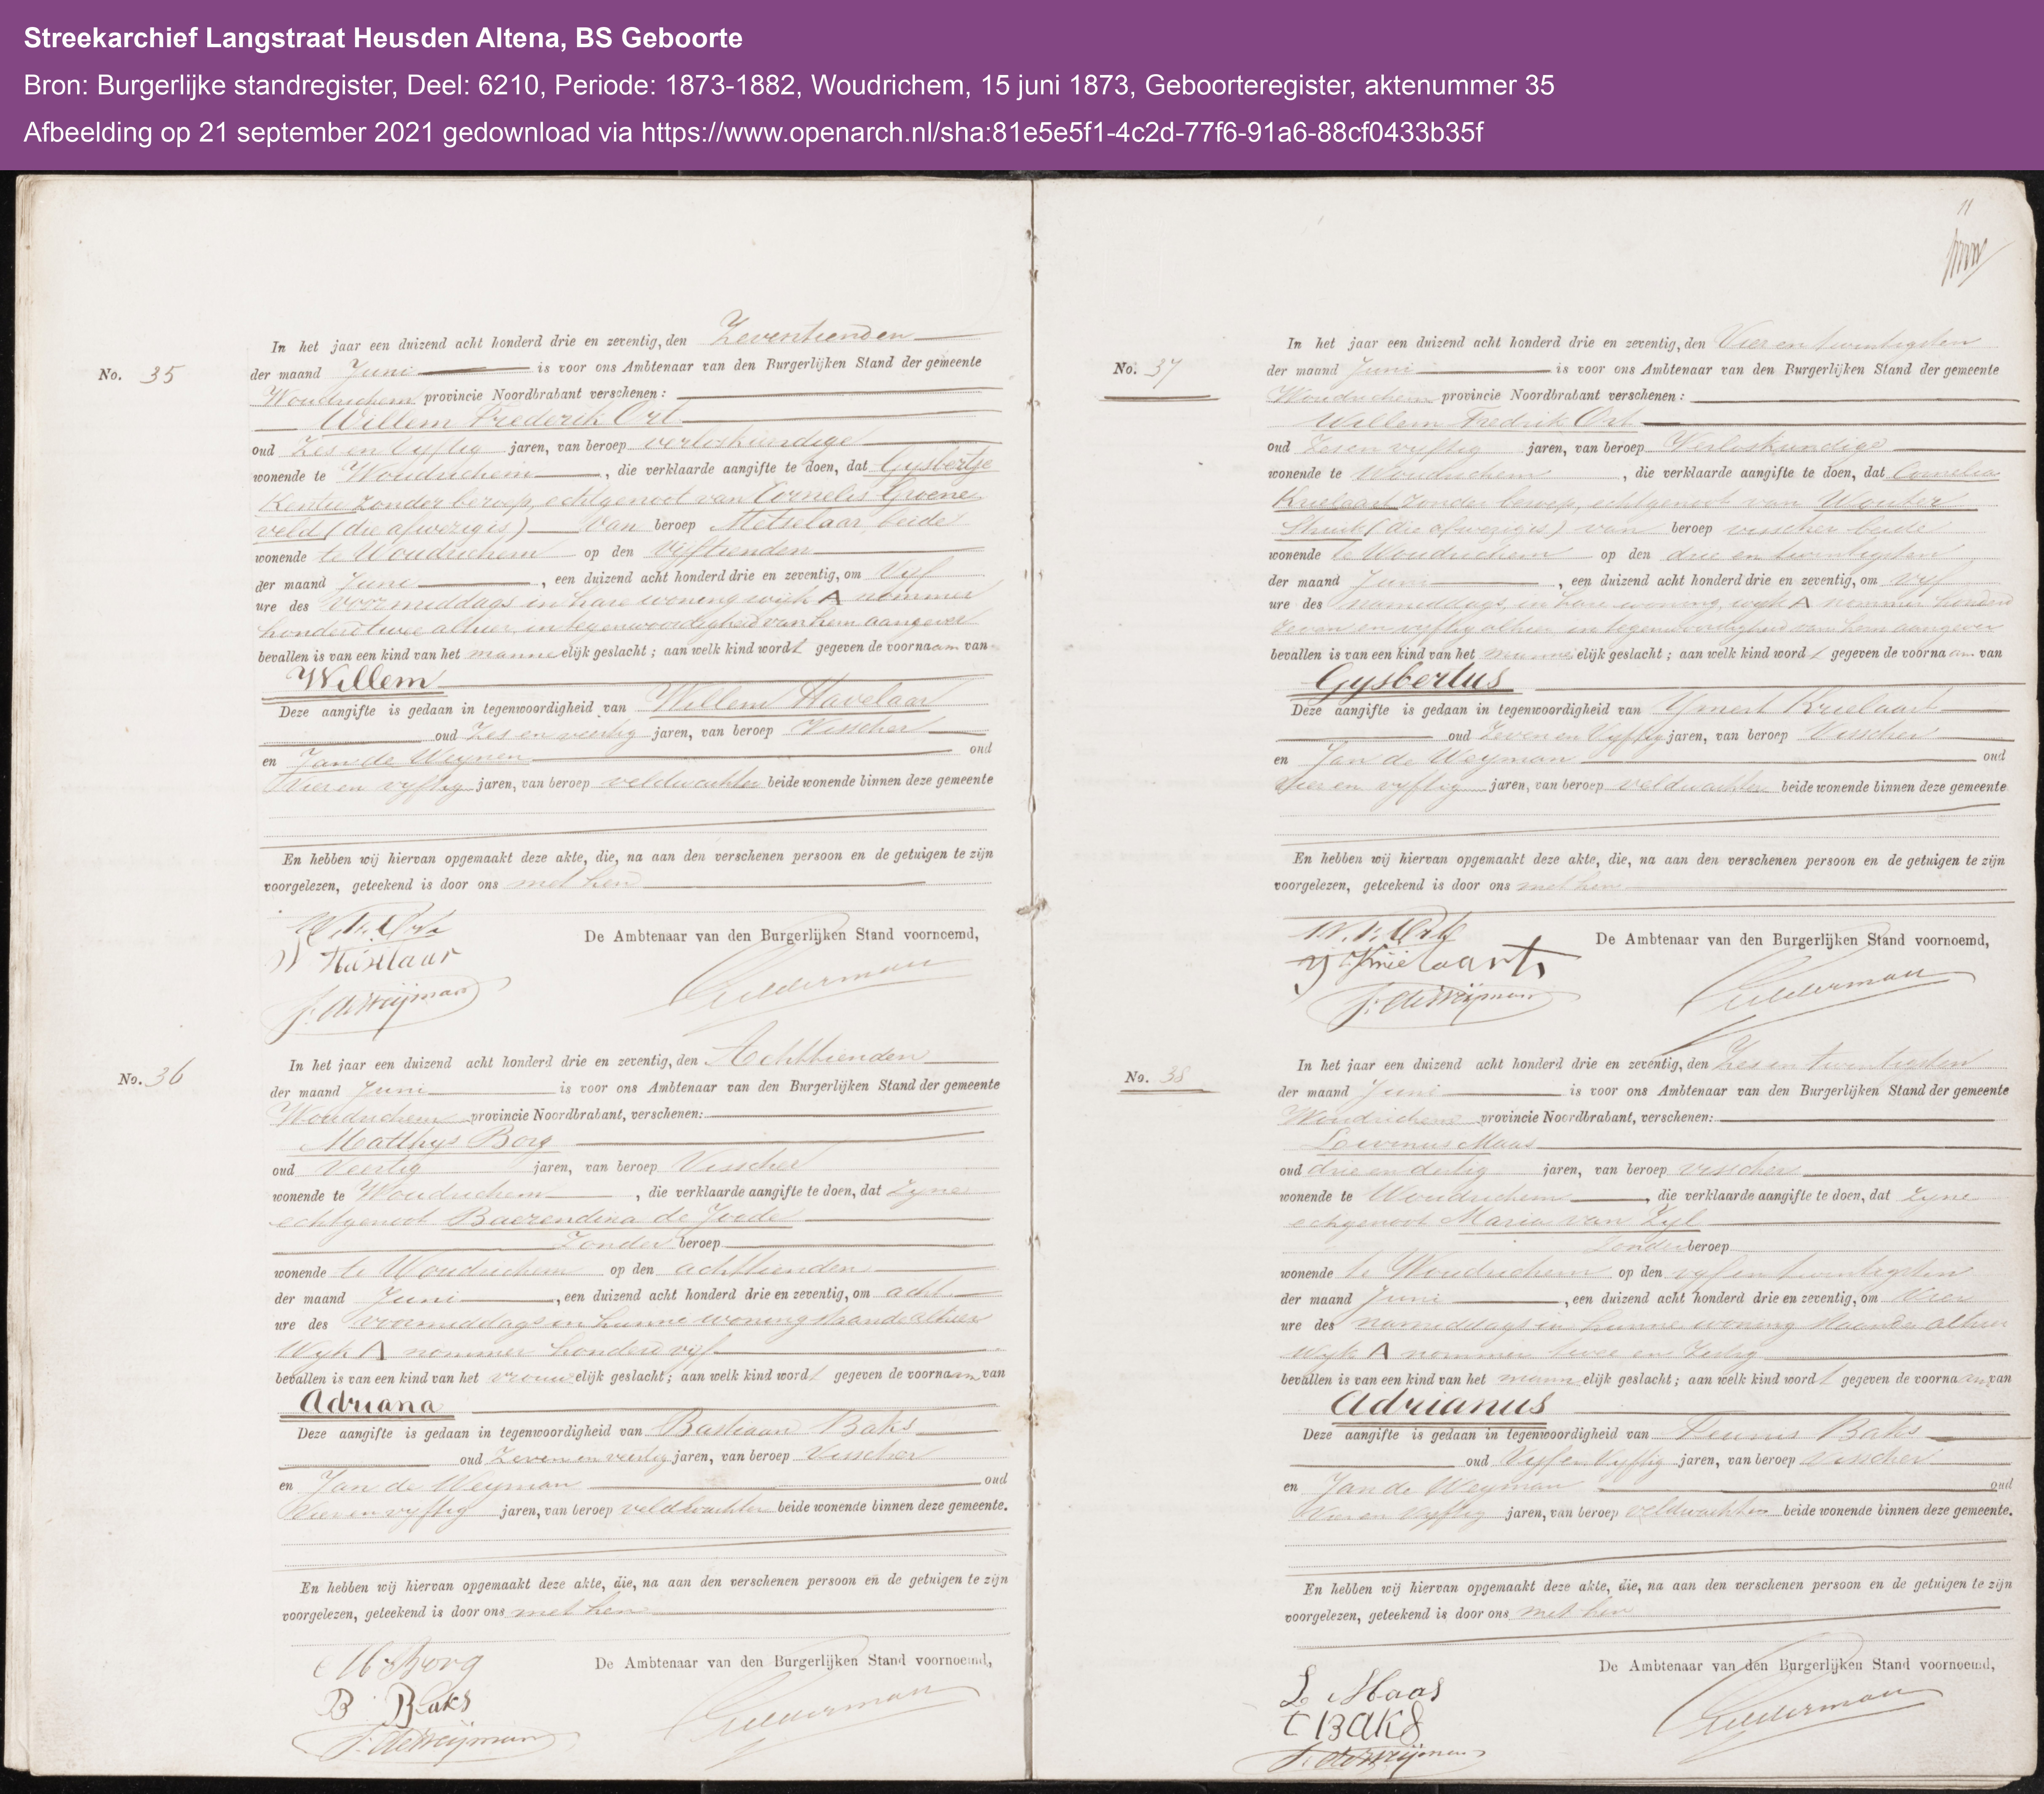 Streekarchief Langstraat Heusden Altena, BS Geboorte
Bron: Burgerlijke standregister, Deel: 6210, Periode: 1873-1882, Woudrichem, 15 juni 1873, Geboorteregister, aktenummer 35
Afbeelding op 21 september 2021 gedownload via https://www.openarch.nl/sha:81e5e5f1-4c2d-77f6-91a6-88cf0433b35f
No. 35
In het jaar een duizend acht honderd drie en zeventig, den Zeventienden
der maand Juni is voor ons Ambtenaar van den Burgerlijken Stand der gemeente
Woudrichem provincie Noordbrabant verschenen:
Willem Frederik Ort
oud Zes en vyftig jaren, van beroep verloskundige
wonende te Woudrichem, die verklaarde aangifte te doen, dat Gysbertje
Kentie zonder beroep, echtgenoot van Cornelis Groene
veld (die afwezig is) van beroep Metselaar, beide
wonende te Woudrichem op den vijftienden
der maand Juni, een duizend acht honderd drie en zeventig, om Vyf
ure des voormiddags in hare woning wijk A nommer
honderd twee alhier, in tegenwoordigheid van hem aangever
bevallen is van een kind van het mannelijk geslacht; aan welk kind wordt gegeven de voornaam van
Willem
Deze aangifte is gedaan in tegenwoordigheid van Willem Havelaar
oud Zes en veertig jaren, van beroep Visscher
en Jan de Weynen oud
Vier en vyftig jaren, van beroep veldwachter beide wonende binnen deze gemeente
En hebben wij hiervan opgemaakt deze akte, die, na aan den verschenen persoon en de getuigen te zijn
voorgelezen, geteekend is door ons met hen
W. F. Ort
De Ambtenaar van den Burgerlijken Stand voornoemd,
Havelaar
J. de Weijman
Gelderman
No. 36
In het jaar een duizend acht honderd drie en zeventig, den Achttienden
der maand Juni is voor ons Ambtenaar van den Burgerlijken Stand der gemeente
Woudrichem provincie Noordbrabant, verschenen:
Matthys Borg
oud Veertig jaren, van beroep Visscher
wonende te Woudrichem, die verklaarde aangifte te doen, dat Zyne
echtgenoot Baerendina de Joode
Zonder beroep
wonende te Woudrichem op den achttienden
der maand Juni, een duizend acht honderd drie en zeventig, om acht
ure des voormiddags in hunne woning staande alhier
Wyk A nommer honderd vijf
bevallen is van een kind van het vrouwelijk geslacht; aan welk kind wordt gegeven de voornaam van
Adriana
Deze aangifte is gedaan in tegenwoordigheid van Bastiaan Baks
oud Zeven en veertig jaren, van beroep Visscher
en Jan de Weyman oud
Vier en vyftig jaren, van beroep veldwachter beide wonende binnen deze gemeente.
En hebben wij hiervan opgemaakt deze akte, die, na aan den verschenen persoon en de getuigen te zijn
voorgelezen, geteekend is door ons met hen
M Borg
De Ambtenaar van den Burgerlijken Stand voornoemd,
B Baks
J. de Weijman
Gelderman
11
No. 37
In het jaar een duizend acht honderd drie en zeventig, den Vier en twintigsten
der maand Juni is voor ons Ambtenaar van den Burgerlijken Stand der gemeente
Woudrichem provincie Noordbrabant verschenen:
Willem Fredrik Ort
oud Zes en vyftig jaren, van beroep Verloskundige
wonende te Woudrichem, die verklaarde aangifte te doen, dat Cornelia
Krielaart zonder beroep, echtgenoot van Wouter
(die afwezig is) van beroep visscher beide
wonende te Woudrichem op den drie en twintigsten
der maand Juni, een duizend acht honderd drie en zeventig, om vyf
ure des namiddags, in hare woning, wyk A nommer honderd
zeven en vyftig alhier in tegenwoordigheid van hem aangever
bevallen is van een kind van het mannelijk geslacht; aan welk kind wordt gegeven de voornaam van
Gysbertus
Deze aangifte is gedaan in tegenwoordigheid van Ymert Krielaart
oud Zeven en Vyftig jaren, van beroep Visscher
en Jan de Weyman oud
Vier en vyftig jaren, van beroep veldwachter beide wonende binnen deze gemeente
En hebben wij hiervan opgemaakt deze akte, die, na aan den verschenen persoon en de getuigen te zijn
voorgelezen, geteekend is door ons met hen
W. F. Ort
De Ambtenaar van den Burgerlijken Stand voornoemd,
Y Krielaart
J. de Weijman
Gelderman
No. 38
In het jaar een duizend acht honderd drie en zeventig, den Zes en twintigsten
der maand Juni is voor ons Ambtenaar van den Burgerlijken Stand der gemeente
Woudrichem provincie Noordbrabant, verschenen:
Levinus Maas
oud drie en dertig jaren, van beroep visscher
wonende te Woudrichem, die verklaarde aangifte te doen, dat zyne
echgenoot Maria van Zyl
Zonder beroep
wonende te Woudrichem op den vyf en twintigsten
der maand Juni, een duizend acht honderd drie en zeventig, om Vier
ure des namiddags in hunne woning staande alhier
Wyk A nommer twee en Zestig
bevallen is van een kind van het mannelijk geslacht; aan welk kind wordt gegeven de voornaam van
Adrianus
Deze aangifte is gedaan in tegenwoordigheid van Teunis Baks
oud Vyf en Vyftig jaren, van beroep visscher
en Jan de Weyman oud
Vier en Vyftig jaren, van beroep veldwachter beide wonende binnen deze gemeente.
En hebben wij hiervan opgemaakt deze akte, die, na aan den verschenen persoon en de getuigen te zijn
voorgelezen, geteekend is door ons met hen
L Maas
De Ambtenaar van den Burgerlijken Stand voornoemd,
T BAKS
J. de Weijman
Gelderman